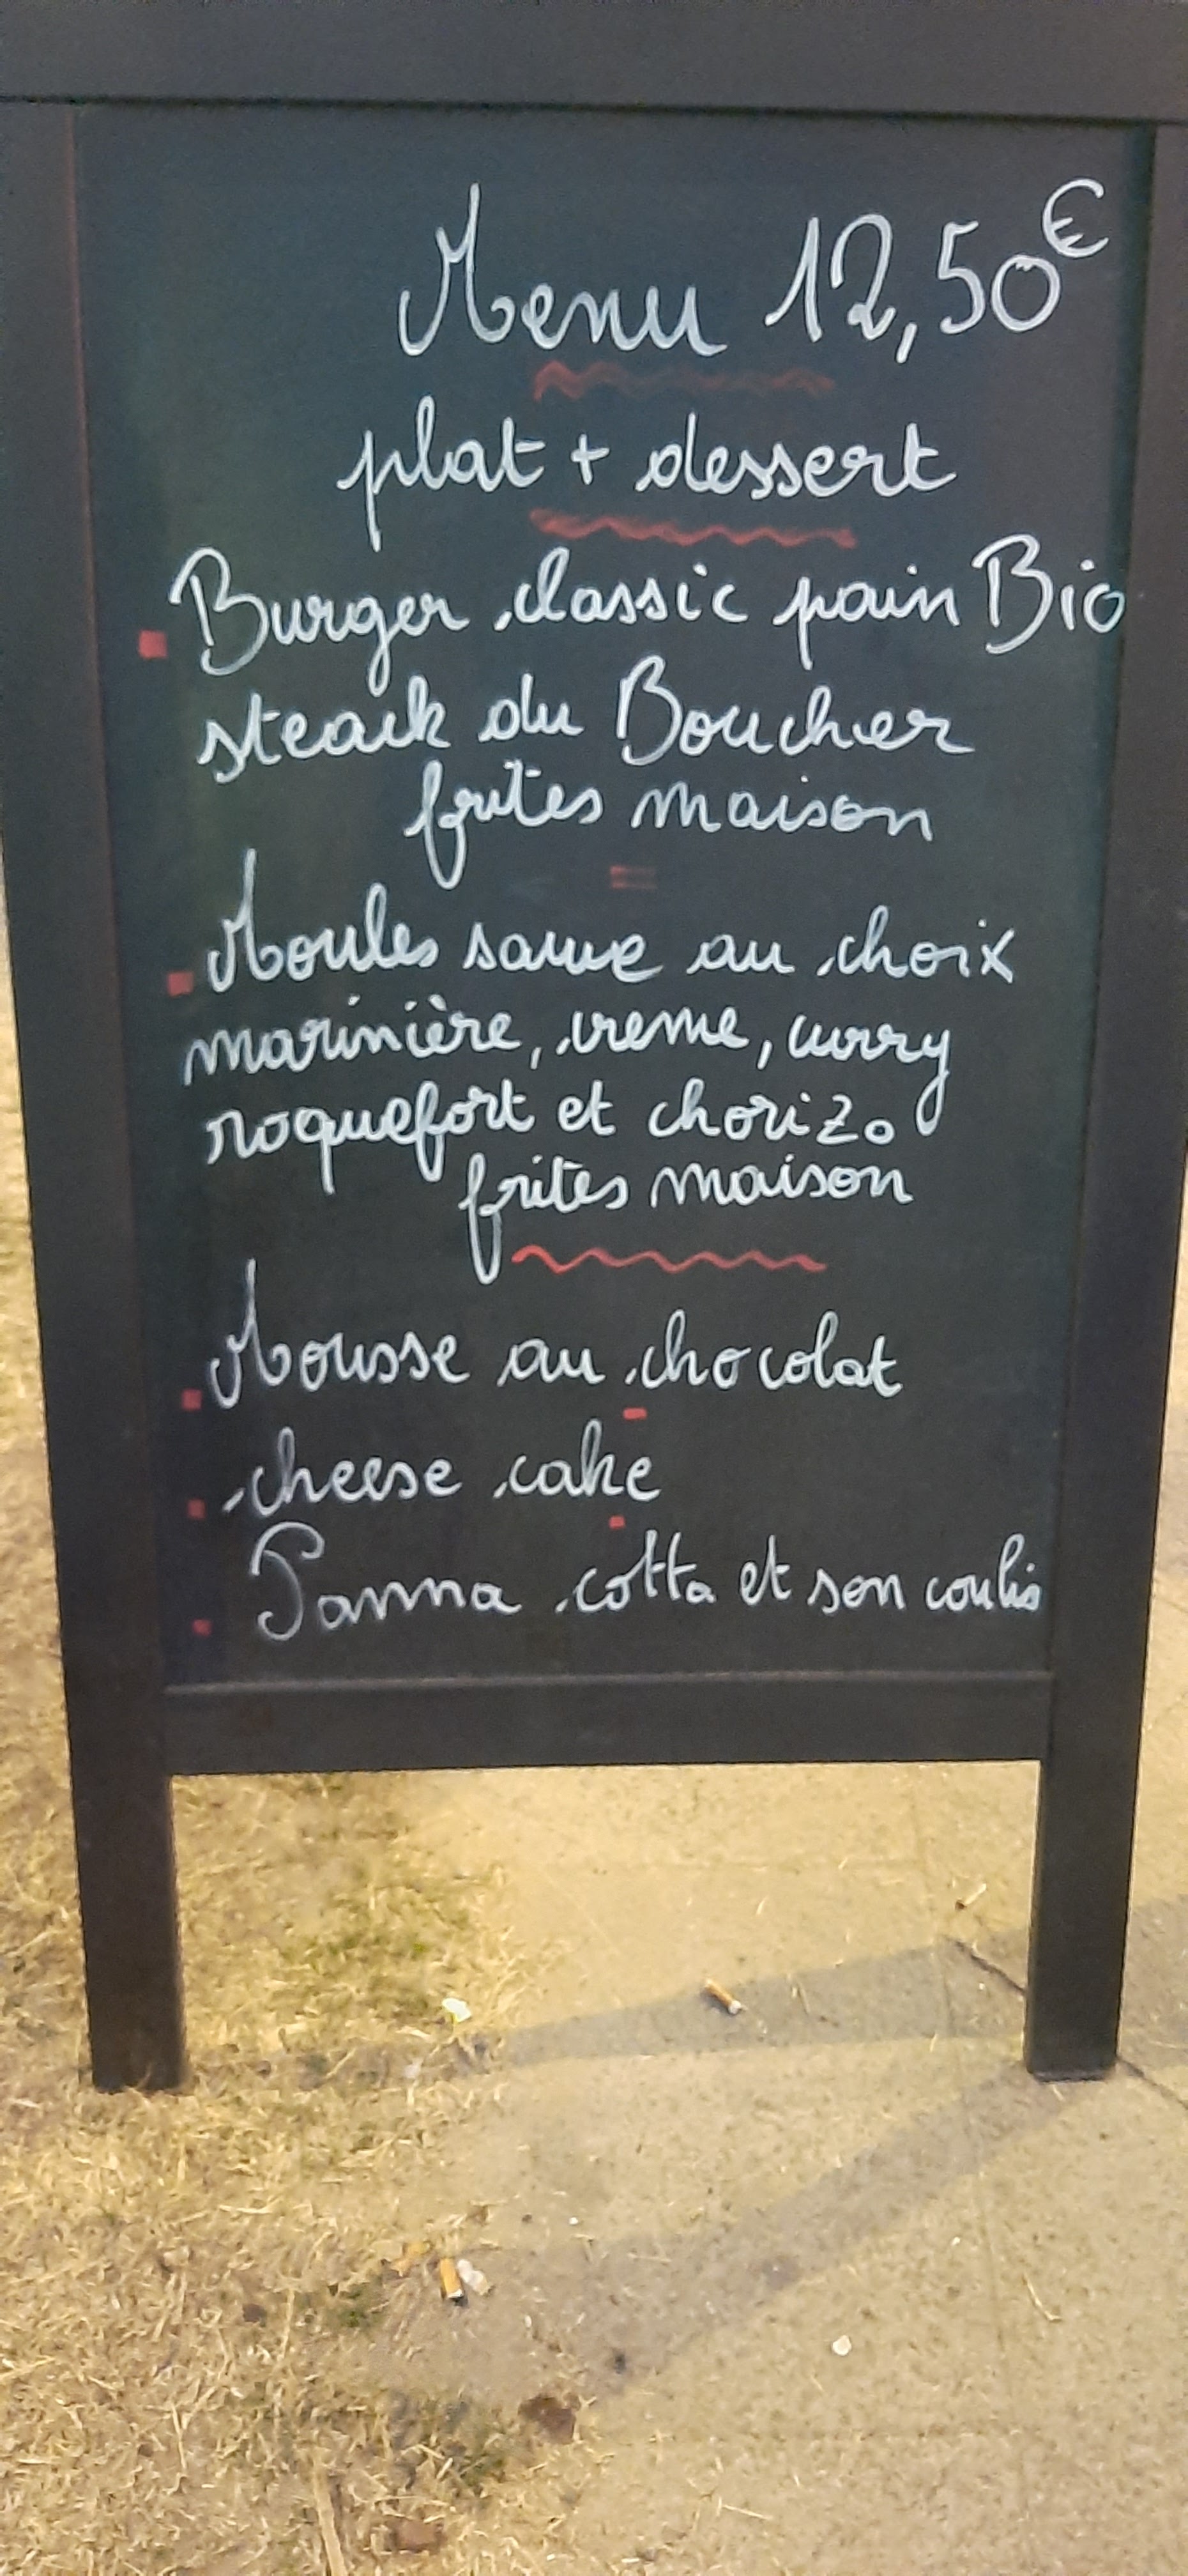 Menu 12,50€
plat + dessert
Burger classic pain Bio
steack du Boucher
frites maison
Moules sauce au choix
marinière, creme, curry
roquefort et chorizo
frites maison
Mousse au chocolat
cheese cake
Panna cotta et son coulis